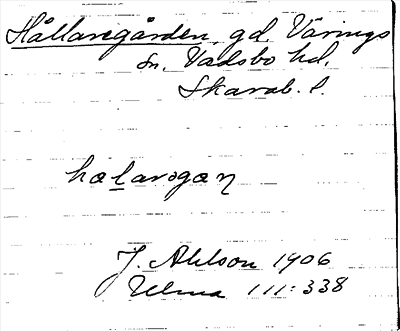 Hållaregården, gd Värings
sn, Vadsbo hd,
Skarab. l.
halarəgaɳ
J. Ahlson 1906
Ulma 111:338